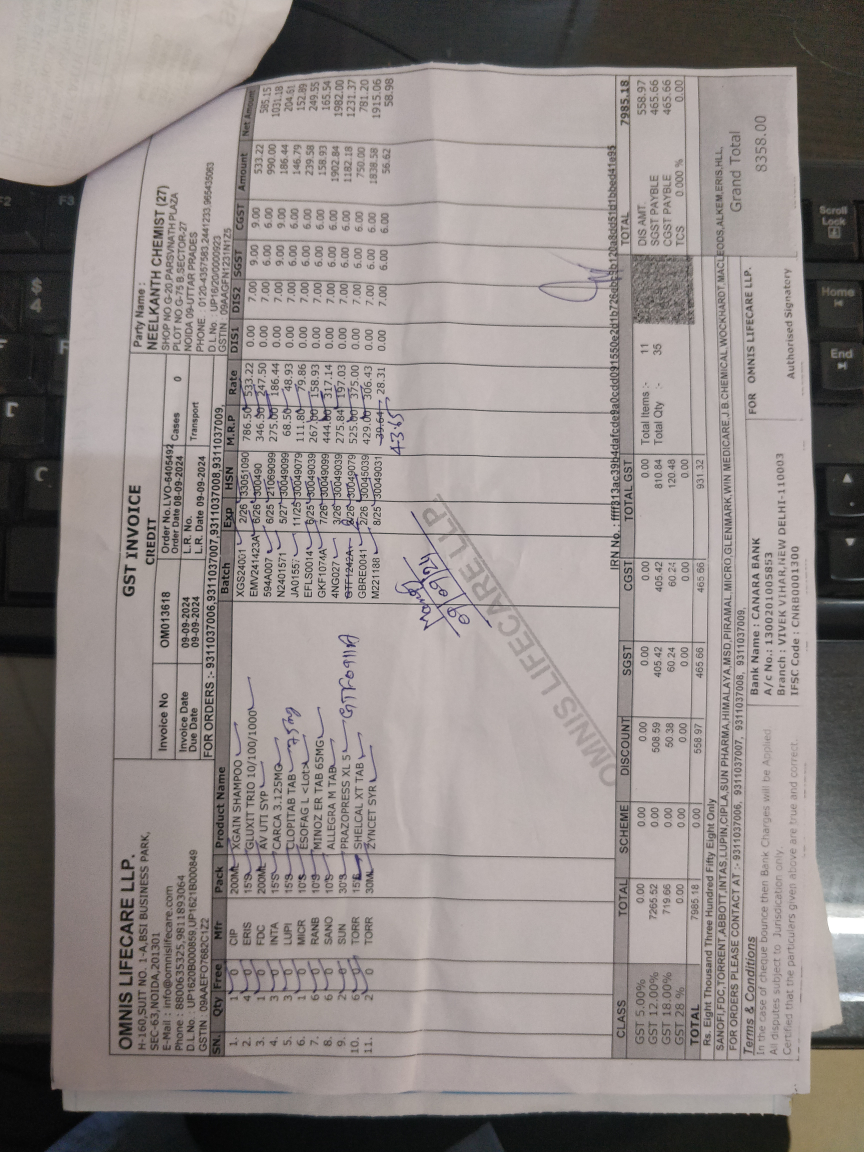 OMNIS LIFECARE LLP.
H-160,SUIT NO. 1-A,BSI BUSINESS PARK,
SEC-63,NOIDA,201301
E-Mail : info@omnislifecare.com
Phone : 8800635325,9811893064
D.L No : UP1620B000859,UP1621B000849
GSTIN : 09AAEFO7682C1Z2
GST INVOICE
CREDIT
Invoice No OM013618 Order No.LVO-6405492
Order Date 08-09-2024 Cases 0
Invoice Date 09-09-2024 L.R. No. Transport
Due Date 09-09-2024 L.R. Date 09-09-2024
FOR ORDERS :- 9311037006,9311037007,9311037008,9311037009,
Party Name :
NEELKANTH CHEMIST (27)
SHOP NO.G-20,PARSVNATH PLAZA
PLOT NO.G-75 B,SECTOR-27
NOIDA 09-UTTAR PRADES
PHONE : 0120-4357583,2441233,
D.L.No : UP16/20/0000923
GSTIN : 09AAGFN1231N1Z5
SN. Qty Free Mfr Pack Product Name Batch Exp HSN M.R.P Rate DIS1 DIS2 SGST CGST Amount Net Amount
1. 1 0 CIP 200ML XGAIN SHAMPOO XGS24001 2/26 33051090 786.50 533.22 0.00 7.00 9.00 9.00 533.22 585.15
2. 4 0 ERIS 15'S GLUXIT TRIO 10/100/1000 EMV241423A 6/26 300490 346.50 247.50 0.00 7.00 6.00 6.00 990.00 1031.18
3. 1 0 FDC 200ML AV UTI SYP 594A007 6/25 21069099 275.00 186.44 0.00 7.00 9.00 9.00 186.44 204.61
4. 3 0 INTA 15'S CARCA 3.125MG N2401571 5/27 30049099 68.50 48.93 0.00 7.00 6.00 6.00 146.79 152.89
5. 3 0 LUPI 15'S CLOPITAB TAB 75mg JA01557 11/25 30049079 111.80 79.86 0.00 7.00 6.00 6.00 239.58 249.55
6. 1 0 MICR 10'S ESOFAG L <Lot> EFLS0014 6/25 30049039 267.00 158.93 0.00 7.00 6.00 6.00 158.93 165.54
7. 6 0 RANB 10'S MINOZ ER TAB 65MG GKF1074A 7/26 30049099 444.00 317.14 0.00 7.00 6.00 6.00 1902.84 1982.00
8. 6 0 SANO 10'S ALLEGRA M TAB 4NG027 3/26 30049039 275.84 197.03 0.00 7.00 6.00 6.00 1182.18 1231.37
9. 2 0 SUN 30'S PRAZOPRESS XL 5 GTF0911A GTF1242A 2/26 30049079 525.00 375.00 0.00 7.00 6.00 6.00 750.00 781.20
10. 6 0 TORR 15'S SHELCAL XT TAB GBRE0041 2/26 30045039 429.00 306.43 0.00 7.00 6.00 6.00 1838.58 1915.06
11. 2 0 TORR 30ML ZYNCET SYR M22118B 8/25 30049031 39.64 28.31 0.00 7.00 6.00 6.00 56.62 58.98
43.65
09/09/24
OMNIS LIFECARE LLP
CLASS TOTAL SCHEME DISCOUNT SGST CGST TOTAL GST
GST 5.00% 0.00 0.00 0.00 0.00 0.00 0.00
GST 12.00% 7265.52 0.00 508.59 405.42 405.42 810.84
GST 18.00% 719.66 0.00 50.38 60.24 60.24 120.48
GST 28 % 0.00 0.00 0.00 0.00 0.00 0.00
TOTAL 7985.18 0.00 558.97 465.66 465.66 931.32
Total Items :- 11
Total Qty :- 35
TOTAL 7985.18
DIS AMT. 558.97
SGST PAYBLE 465.66
CGST PAYBLE 465.66
TCS 0.000 % 0.00
Rs. Eight Thousand Three Hundred Fifty Eight Only
SANOFI,FDC,TORRENT,ABBOTT,INTAS,LUPIN,CIPLA,SUN PHARMA,HIMALAYA,MSD,PIRAMAL,MICRO,GLENMARK,WIN MEDICARE,J.B.CHEMICAL,WOCKHARDT,MACLEODS,ALKEM,ERIS,HLL,
FOR ORDERS PLEASE CONTACT AT :- 9311037006, 9311037007, 9311037008, 9311037009,
Grand Total
8358.00
Terms & Conditions
In the case of cheque bounce then Bank Charges will be Applied
All disputes subject to Jurisdication only.
Certified that the particulers given above are true and correct.
Bank Name : CANARA BANK
A/c No.: 1300201005853
Branch : VIVEK VIHAR,NEW DELHI-110003
IFSC Code : CNRB0001300
FOR OMNIS LIFECARE LLP.
Authorised Signatory
F2
F3
$
4
Scroll
Lock
Home
End